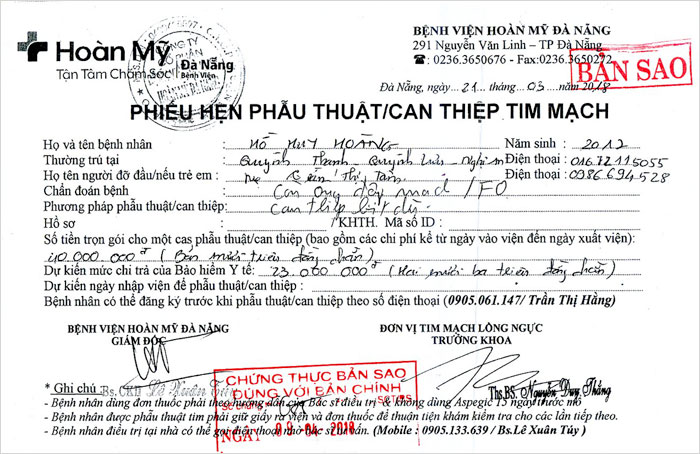 Hoàn Mỹ
Đà Nẵng
Bệnh Viện
Tận Tâm Chăm Sóc
BỆNH VIỆN HOÀN MỸ ĐÀ NẴNG
291 Nguyễn Văn Linh – TP Đà Nẵng
☎: 0236.3650676 - Fax:0236.3650272
BẢN SAO
Đà Nẵng, ngày 21 tháng 03 năm 2018
PHIẾU HẸN PHẪU THUẬT/CAN THIỆP TIM MẠCH
Họ và tên bệnh nhân HỒ HUY HOÀNG Năm sinh : 2012
Thường trú tại : Quỳnh Thanh - Quỳnh Lưu - Nghệ An Điện thoại : 01672115055
Họ tên người đỡ đầu/nếu trẻ em : mẹ Thị Tám Điện thoại : 0986.694.528
Chẩn đoán bệnh : Còn ống động mạch /FO
Phương pháp phẫu thuật/can thiệp: Can thiệp bít dù
Hồ sơ : /KHTH. Mã số ID :
Số tiền trọn gói cho một cas phẫu thuật/can thiệp (bao gồm các chi phí kể từ ngày vào viện đến ngày xuất viện):
40.000.000đ (Bốn mươi triệu đồng chẵn)
Dự kiến mức chi trả của Bảo hiểm Y tế: 23.000.000đ (Hai mươi ba triệu đồng chẵn)
Dự kiến ngày nhập viện để phẫu thuật/can thiệp :
Bệnh nhân có thể đăng ký trước khi phẫu thuật/can thiệp theo số điện thoại (0905.061.147/ Trần Thị Hằng)
BỆNH VIỆN HOÀN MỸ ĐÀ NẴNG
GIÁM ĐỐC
ĐƠN VỊ TIM MẠCH LỒNG NGỰC
TRƯỞNG KHOA
CHỨNG THỰC BẢN SAO
ĐÚNG VỚI BẢN CHÍNH
NGÀY 09-04-2018
Ths.BS. Nguyễn Duy Thắng
* Ghi chú :
- Bệnh nhân dùng đơn thuốc phải theo hướng dẫn của Bác sĩ điều trị & không dùng Aspegic 15 ngày trước mổ
- Bệnh nhân được phẫu thuật tim phải giữ giấy ra viện và đơn thuốc để thuận tiện khám kiểm tra cho các lần tiếp theo.
- Bệnh nhân điều trị tại nhà có thể gọi điện thoại nhờ Bác sĩ tư vấn. (Mobile : 0905.133.639 / Bs.Lê Xuân Túy )